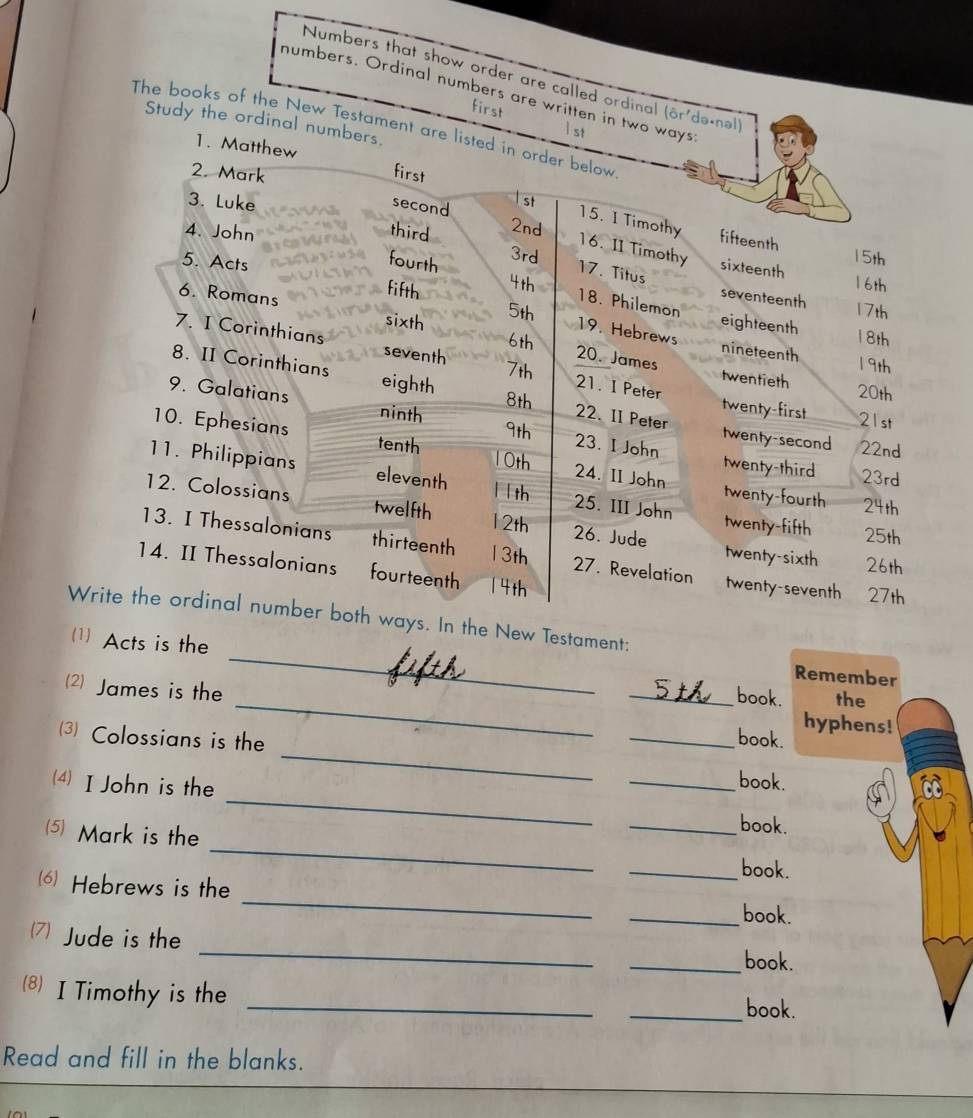 Numbers that show order are called ordinal (ôr'də•nəl)
numbers. Ordinal numbers are written in two ways:
first 1st
The books of the New Testament are listed in order below.
Study the ordinal numbers.
1. Matthew first 1st
2. Mark second 2nd
3. Luke third 3rd
4. John fourth 4th
5. Acts fifth 5th
6. Romans sixth 6th
7. I Corinthians seventh 7th
8. II Corinthians eighth 8th
9. Galatians ninth 9th
10. Ephesians tenth 10th
11. Philippians eleventh 11th
12. Colossians twelfth 12th
13. I Thessalonians thirteenth 13th
14. II Thessalonians fourteenth 14th
15. I Timothy fifteenth 15th
16. II Timothy sixteenth 16th
17. Titus seventeenth 17th
18. Philemon eighteenth 18th
19. Hebrews nineteenth 19th
20. James twentieth 20th
21. I Peter twenty-first 21st
22. II Peter twenty-second 22nd
23. I John twenty-third 23rd
24. II John twenty-fourth 24th
25. III John twenty-fifth 25th
26. Jude twenty-sixth 26th
27. Revelation twenty-seventh 27th
Write the ordinal number both ways. In the New Testament:
(1) Acts is the fifth 5th book.
(2) James is the ______ ______ book.
(3) Colossians is the ______ ______ book.
(4) I John is the ______ ______ book.
(5) Mark is the ______ ______ book.
(6) Hebrews is the ______ ______ book.
(7) Jude is the ______ ______ book.
(8) I Timothy is the ______ ______ book.
Remember
the
hyphens!
Read and fill in the blanks.